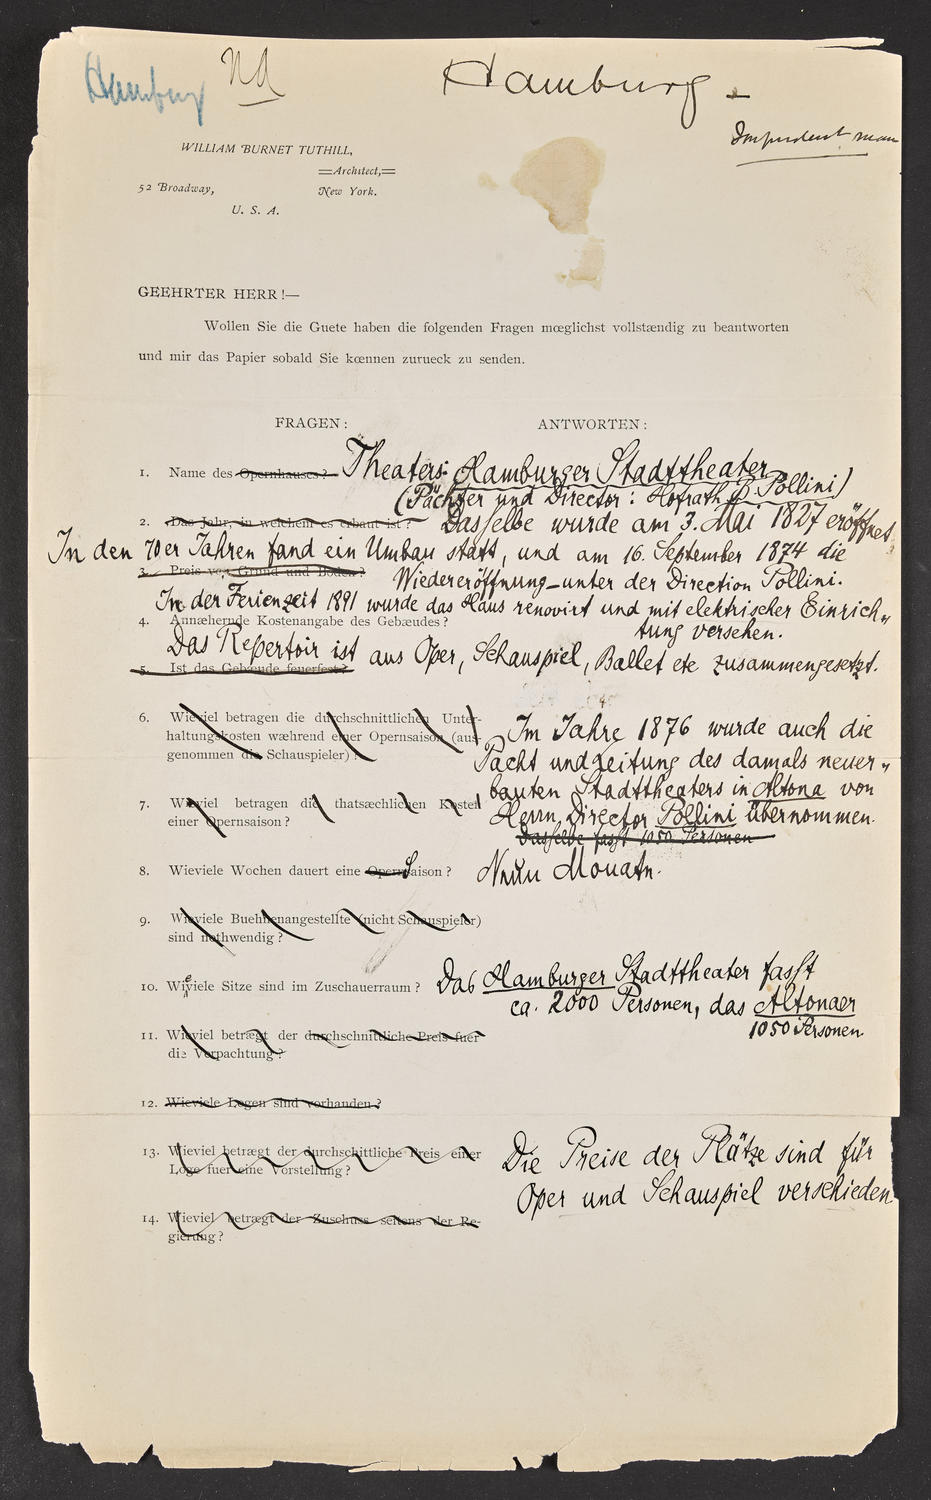 Hamburg
Nd
Hamburg.
Independent man
WILLIAM BURNET TUTHILL,
Architect,
52 Broadway, New York.
U. S. A.
GEEHRTER HERR!—
Wollen Sie die Guete haben die folgenden Fragen mœglichst vollstændig zu beantworten
und mir das Papier sobald Sie kœnnen zurueck zu senden.
FRAGEN: ANTWORTEN:
1. Name des Opernhauses? Theaters: Hamburger Stadttheater
(Pächter und Director: Hofrath B. Pollini)
2. Das Jahr, in welchem es erbaut ist? Dasselbe wurde am 3. Mai 1827 eröffnet.
In den 70er Jahren fand ein Umbau statt, und am 16. September 1874 die
3. Preis von Grund und Boden? Wiedereröffnung unter der Direction Pollini.
In der Ferienzeit 1891 wurde das Haus renovirt und mit elektrischer Einrich„
4. Annæhernde Kostenangabe des Gebæudes? tung versehen.
Das Repertoir ist aus Oper, Schauspiel, Ballet etc zusammengesetzt.
5. Ist das Gebæude feuerfest?
6. Wieviel betragen die durchschnittlichen Unter-
haltungskosten wæhrend einer Opernsaison (aus-
genommen die Schauspieler)?
Im Jahre 1876 wurde auch die
Pacht und Leitung des damals neuer„
bauten Stadttheaters in Altona von
Herrn Director Pollini übernommen.
Dasselbe fasst 1050 Personen
7. Wieviel betragen die thatsæchlichen Kosten
einer Opernsaison?
8. Wieviele Wochen dauert eine Opernsaison? S Neun Monate.
9. Wieviele Buehnenangestellte (nicht Schauspieler)
sind nothwendig?
10. Wieviele Sitze sind im Zuschauerraum? Das Hamburger Stadttheater fasst
ca. 2000 Personen, das Altonaer
1050 Personen
11. Wieviel betrægt der durchschnittliche Preis fuer
die Verpachtung?
12. Wieviele Logen sind vorhanden?
13. Wieviel betrægt der durchschittliche Preis einer
Loge fuer eine Vorstellung?
Die Preise der Plätze sind für
Oper und Schauspiel verschieden.
14. Wieviel betrægt der Zuschuss seitens der Re-
gierung?